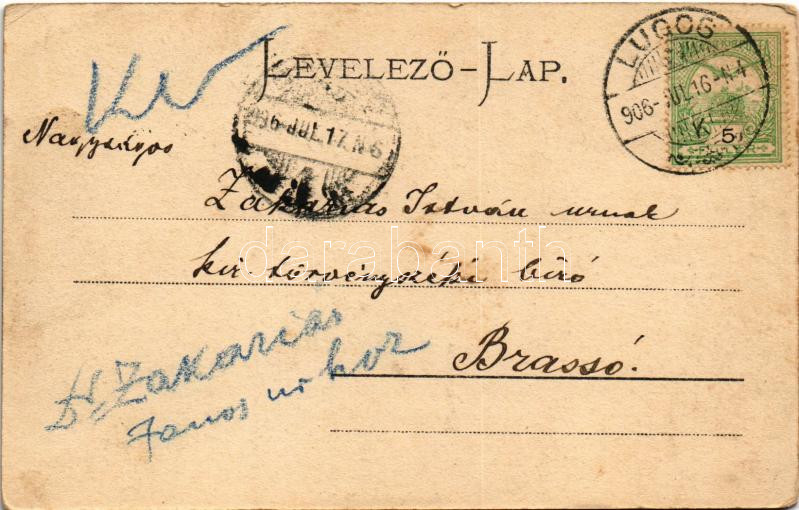 LEVELEZŐ-LAP.
LUGOS
906-JUL.16-N4
K
5
906-JUL.17.N6
Nagyságos
Zakariás István urnak
kir törvényszéki biró
Brassó.
Dr Zakariás
János úrhoz
darabanth